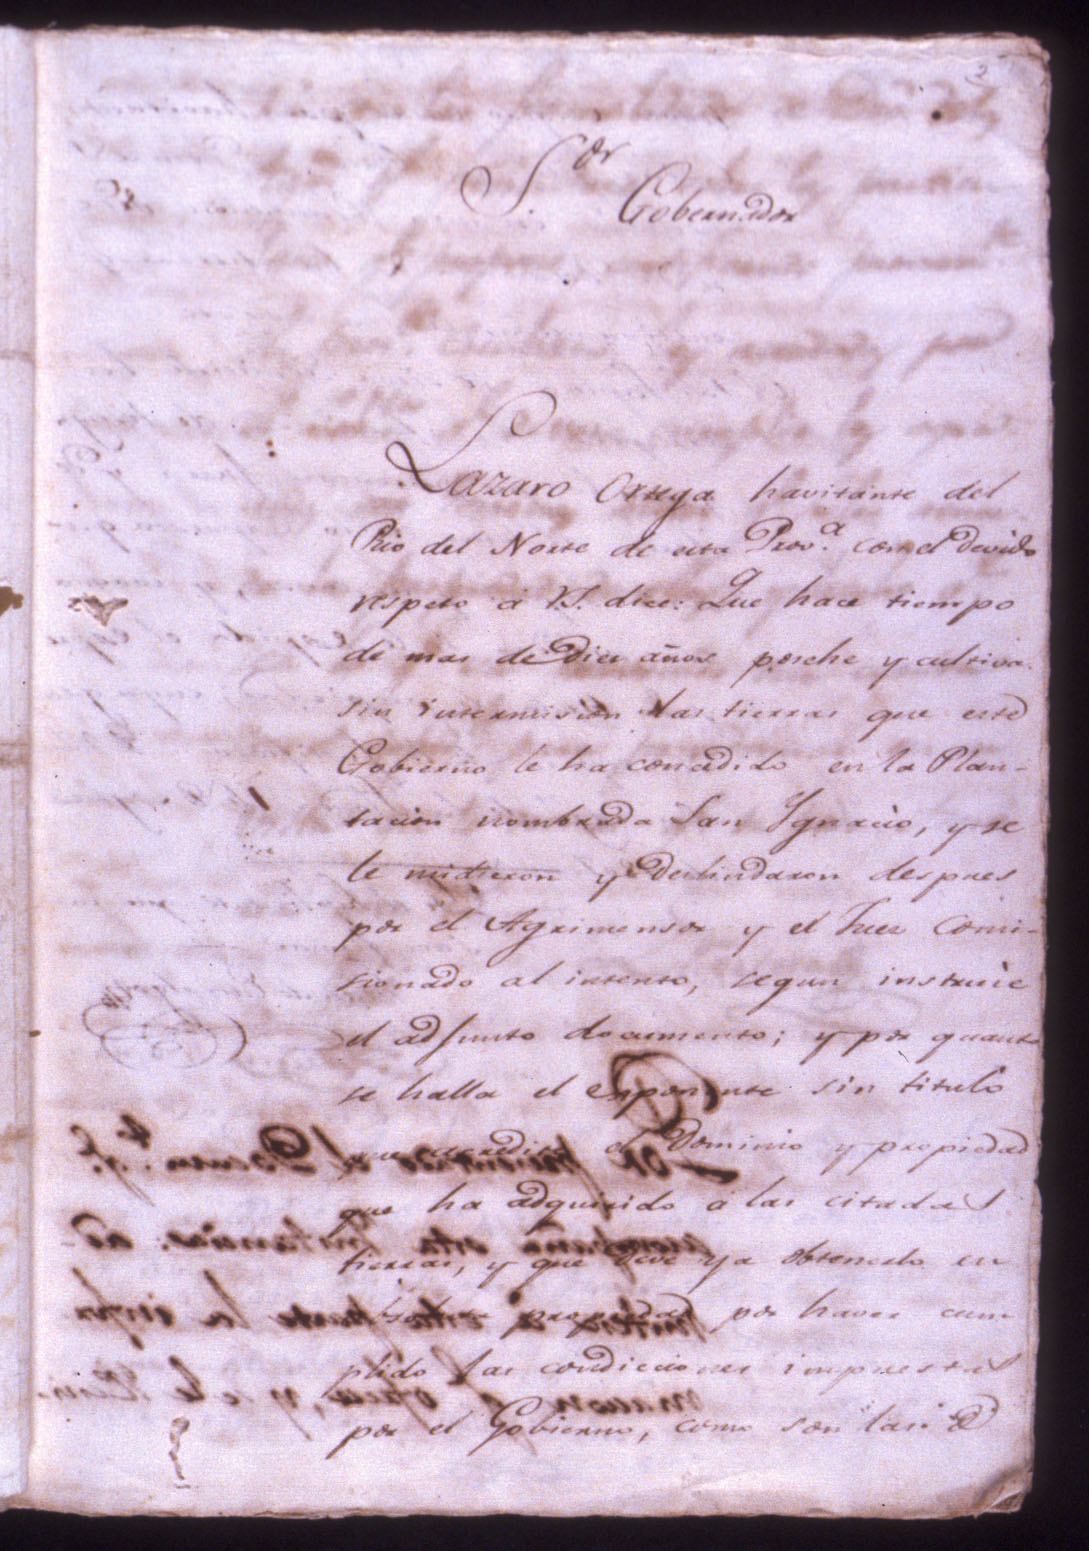 2
S.or
Gobernador
Lazaro Ortega havitante del
Rio del Norte de esta Prov.a con el devido
respeto á V.S. dice: Que hace tiempo
de mas de Diez años poséhe y cultiva
sin intermision las tierras que este
Gobierno le ha concedido en la Plan-
tacion nombrada San Ygnacio, y se
le midieron y Deslindaron despues
por el Agrimensor y el Juez Comi-
sionado al intento, segun instruie
el adjunto documento; y por quanto
se halla el exponente sin titulo
que acredite el Dominio y propiedad
que ha adquirido á las citadas
tierras, y que deve ya obtenerlo en
propiedad por haver cum
plido las condicciones impuestas
por el Gobierno, como son las d